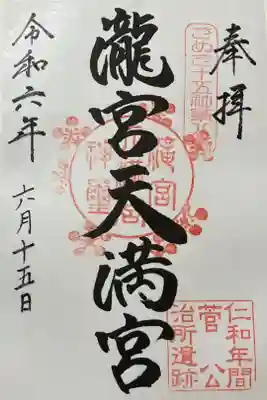 奉拝
さぬき十五社第八番
瀧宮天満宮
仁和年間
菅公
治所遺跡
令和六年
六月十五日